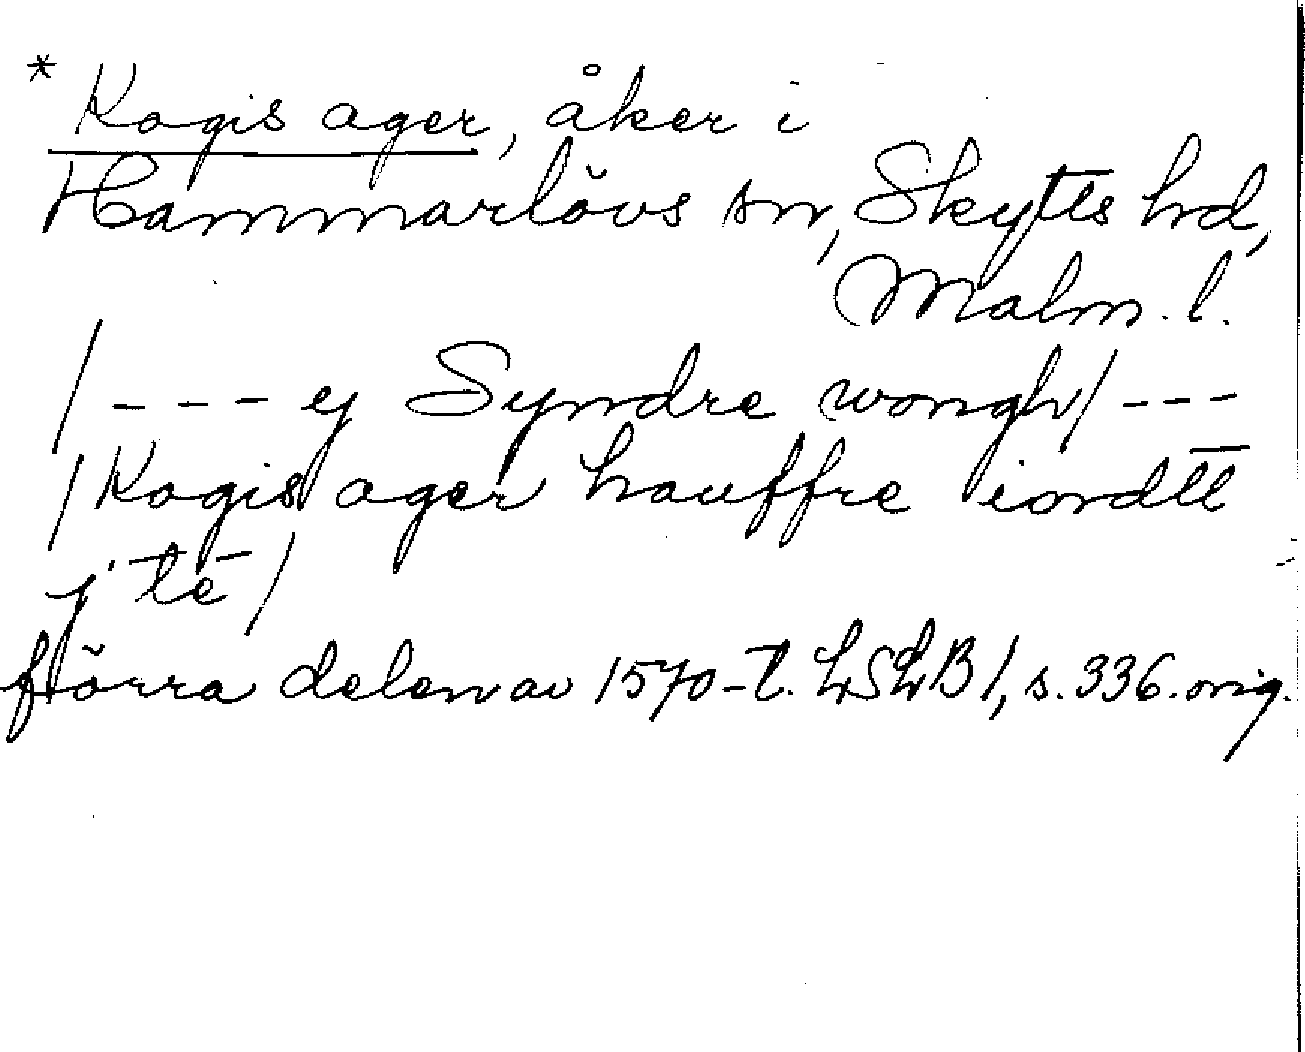 * Kogis ager, åker i
Hammarlövs sn, Skytts hd,
Malm. l.
/ - - - ej Syndre wongh / - - -
/ Kogis ager hauffre iordtt
j te /
förra delen av 1570-t. LSLB 1, s. 336. orig.